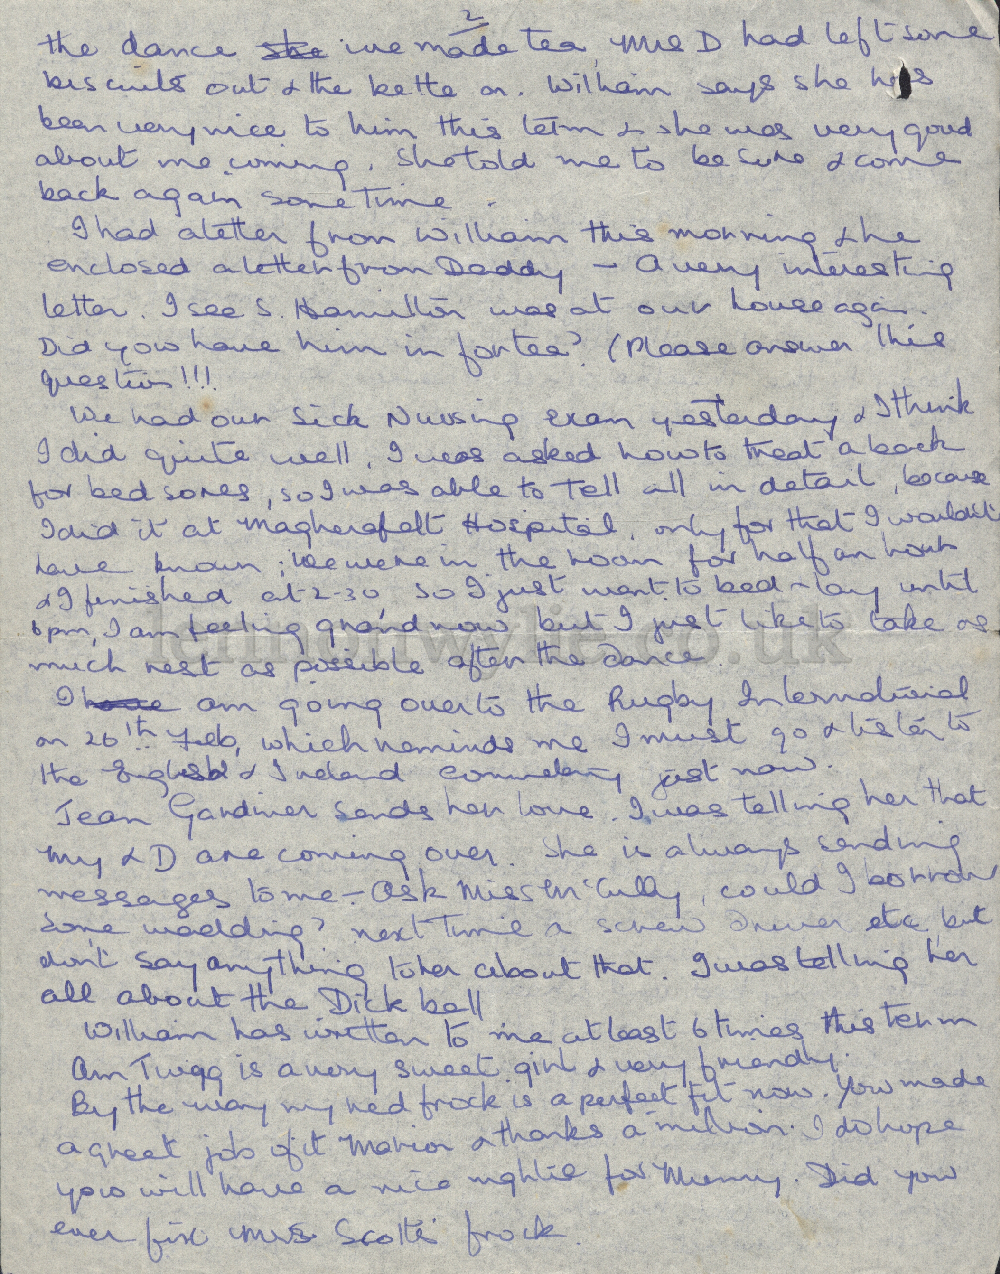 2
the dance she we made tea, Mrs D had left some
biscuits out & the kettle on. William says she has
been very nice to him this term & she was very good
about me coming. She told me to be sure & come
back again sometime.
I had a letter from William this morning & he
enclosed a letter from Daddy – A very interesting
letter. I see S. Hamilton was at our house again.
Did you have him in for tea? (Please answer this
question!!!
We had our Sick Nursing exam yesterday & I think
I did quite well, I was asked how to treat a back
for bed sores, so I was able to tell all in detail, because
I did it at Magherafelt Hospital, only for that I wouldn't
have known; we were in the room for half an hour
& I finished at 2-30, so I just went to bed – lay until
6pm, I am feeling grand now but I just like to take as
lennonwylie.co.uk
much rest as possible after the dance.
I have am going over to the Rugby International
on 26th Feb, which reminds me I must go & listen to
the England & Ireland commentary just now.
Jean Gardiner sends her love. I was telling her that
My & D are coming over. She is always sending
messages to me – Ask Miss McCully, could I borrow
some wadding? next time a screw driver etc, but
don't say anything to her about that. I was telling her
all about the Dick ball
William has written to me at least 6 times this term
Ann Twigg is a very sweet girl & very friendly.
By the way my red frock is a perfect fit now. You made
a great job of it Marion & thanks a million. I do hope
you will have a nice nightie for Mummy. Did you
ever fix Mrs. Scotts' frock.